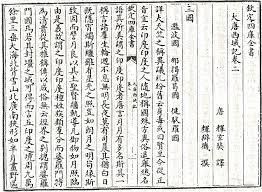 欽定四庫全書
大唐西域記卷二
唐 釋玄奘 譯
釋辯機 撰
三國
濫波國 那揭羅曷國 健馱邏國
詳夫天竺之稱異議糾紛舊云身毒或曰賢豆今從正
音宜云印度印度之人隨地稱國殊方異俗遙舉總名
語其所美謂之印度印度者唐言月月有多名斯其一
稱言諸羣生輪迴不息無明長夜莫有司晨其猶白日
既隱宵燭斯繼雖有星光之照豈如朗月之明苟緣斯
致因而譬月良以其土聖賢繼軌導凡御物如月照臨
由是義故謂之印度印度種姓族類羣分而婆羅門特
為清貴從其雅稱傳以成俗無云經界之別總謂婆羅
門國焉若其封疆之域可得而言五印度之境周九萬
餘里三垂大海北背雪山北廣南狹形如半月畫野區